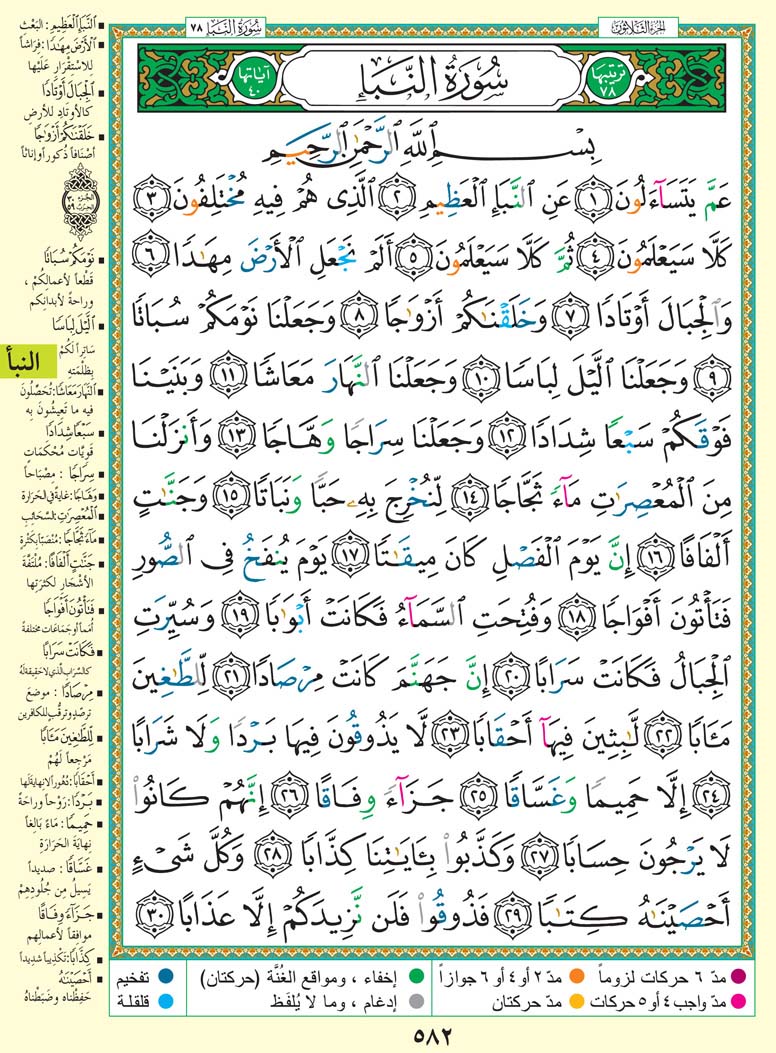 الجزء الثلاثون
سورة النبأ ٧٨
ترتيبها ٧٨
سُورَةُ النَّبَإِ
آياتها ٤٠
بِسْمِ ٱللَّهِ ٱلرَّحْمَٰنِ ٱلرَّحِيمِ
عَمَّ يَتَسَآءَلُونَ ١ عَنِ ٱلنَّبَإِ ٱلْعَظِيمِ ٢ ٱلَّذِى هُمْ فِيهِ مُخْتَلِفُونَ ٣
كَلَّا سَيَعْلَمُونَ ٤ ثُمَّ كَلَّا سَيَعْلَمُونَ ٥ أَلَمْ نَجْعَلِ ٱلْأَرْضَ مِهَٰدًا ٦
وَٱلْجِبَالَ أَوْتَادًا ٧ وَخَلَقْنَٰكُمْ أَزْوَٰجًا ٨ وَجَعَلْنَا نَوْمَكُمْ سُبَاتًا
٩ وَجَعَلْنَا ٱلَّيْلَ لِبَاسًا ١٠ وَجَعَلْنَا ٱلنَّهَارَ مَعَاشًا ١١ وَبَنَيْنَا
فَوْقَكُمْ سَبْعًا شِدَادًا ١٢ وَجَعَلْنَا سِرَاجًا وَهَّاجًا ١٣ وَأَنزَلْنَا
مِنَ ٱلْمُعْصِرَٰتِ مَآءً ثَجَّاجًا ١٤ لِّنُخْرِجَ بِهِۦ حَبًّا وَنَبَاتًا ١٥ وَجَنَّٰتٍ
أَلْفَافًا ١٦ إِنَّ يَوْمَ ٱلْفَصْلِ كَانَ مِيقَٰتًا ١٧ يَوْمَ يُنفَخُ فِى ٱلصُّورِ
فَتَأْتُونَ أَفْوَاجًا ١٨ وَفُتِحَتِ ٱلسَّمَآءُ فَكَانَتْ أَبْوَٰبًا ١٩ وَسُيِّرَتِ
ٱلْجِبَالُ فَكَانَتْ سَرَابًا ٢٠ إِنَّ جَهَنَّمَ كَانَتْ مِرْصَادًا ٢١ لِّلطَّٰغِينَ
مَـَٔابًا ٢٢ لَّٰبِثِينَ فِيهَآ أَحْقَابًا ٢٣ لَّا يَذُوقُونَ فِيهَا بَرْدًا وَلَا شَرَابًا
٢٤ إِلَّا حَمِيمًا وَغَسَّاقًا ٢٥ جَزَآءً وِفَاقًا ٢٦ إِنَّهُمْ كَانُوا۟
لَا يَرْجُونَ حِسَابًا ٢٧ وَكَذَّبُوا۟ بِـَٔايَٰتِنَا كِذَّابًا ٢٨ وَكُلَّ شَىْءٍ
أَحْصَيْنَٰهُ كِتَٰبًا ٢٩ فَذُوقُوا۟ فَلَن نَّزِيدَكُمْ إِلَّا عَذَابًا ٣٠
النَّبَإِ الْعَظِيمِ: البَعْث
الْأَرْضَ مِهَٰدًا: فِرَاشاً
للاستِقْرَارِ عَلَيْها
الْجِبَالَ أَوْتَادًا
كالأوتادِ للأرضِ
خَلَقْنَٰكُمْ أَزْوَٰجًا
أصْنَافاً ذُكوراً وإنَاثاً
الجزء ٣٠
الحزب ٥٩
نَوْمَكُمْ سُبَاتًا
قَطْعاً لأعمالِكُمْ ،
وراحةً لأبدانِكم
الَّيْلَ لِبَاسًا
سَاتِراً لَكُمْ
بِظُلْمَتِهِ
النبأ
النَّهَارَ مَعَاشًا: تُحَصِّلُونَ
فيه ما تَعِيشُونَ بِه
سَبْعًا شِدَادًا
قَوِيَّاتٍ مُحْكَمَاتٍ
سِرَاجًا : مِصْبَاحاً
وَهَّاجًا: غَايَةً في الحَرَارَةِ
الْمُعْصِرَٰتِ: السَّحَائِبِ
مَآءً ثَجَّاجًا: مُنْصَبّاً بكَثْرةٍ
جَنَّٰتٍ أَلْفَافًا: مُلْتَفَّةَ
الأشْجَارِ لكَثْرَتِها
فَتَأْتُونَ أَفْوَاجًا
أمَماً أو جَمَاعَاتٍ مختلفة
فَكَانَتْ سَرَابًا
كالسَّرَابِ الَّذي لا حقيقة لهُ
مِرْصَادًا : موضعَ
ترصّدٍ وترقّبٍ للكافرين
لِلطَّٰغِينَ مَـَٔابًا
مَرْجِعاً لَهُمْ
أَحْقَابًا: دُهُوراً لا نِهَايَةَ لَها
بَرْدًا: رَوْحاً وراحةً
حَمِيمًا: مَاءً بَالِغاً
نِهايَةَ الحَرَارَةِ
غَسَّاقًا : صديداً
يَسِيلُ مِن جُلُودِهِمْ
جَزَآءً وِفَاقًا
موافقاً لأعمالِهِم
كِذَّابًا: تَكْذِيباً شديداً
أَحْصَيْنَٰهُ
حَفِظْنَاه وضَبَطْنَاهُ
مدّ ٦ حركات لزوماً مدّ ٢ أو ٤ أو ٦ جوازاً إخفاء ، ومواقع الغُنَّة (حركتان) تفخيم
مدّ واجب ٤ أو ٥ حركات مدّ حركتان إدغام ، وما لا يُلفَظ قلقلة
٥٨٢